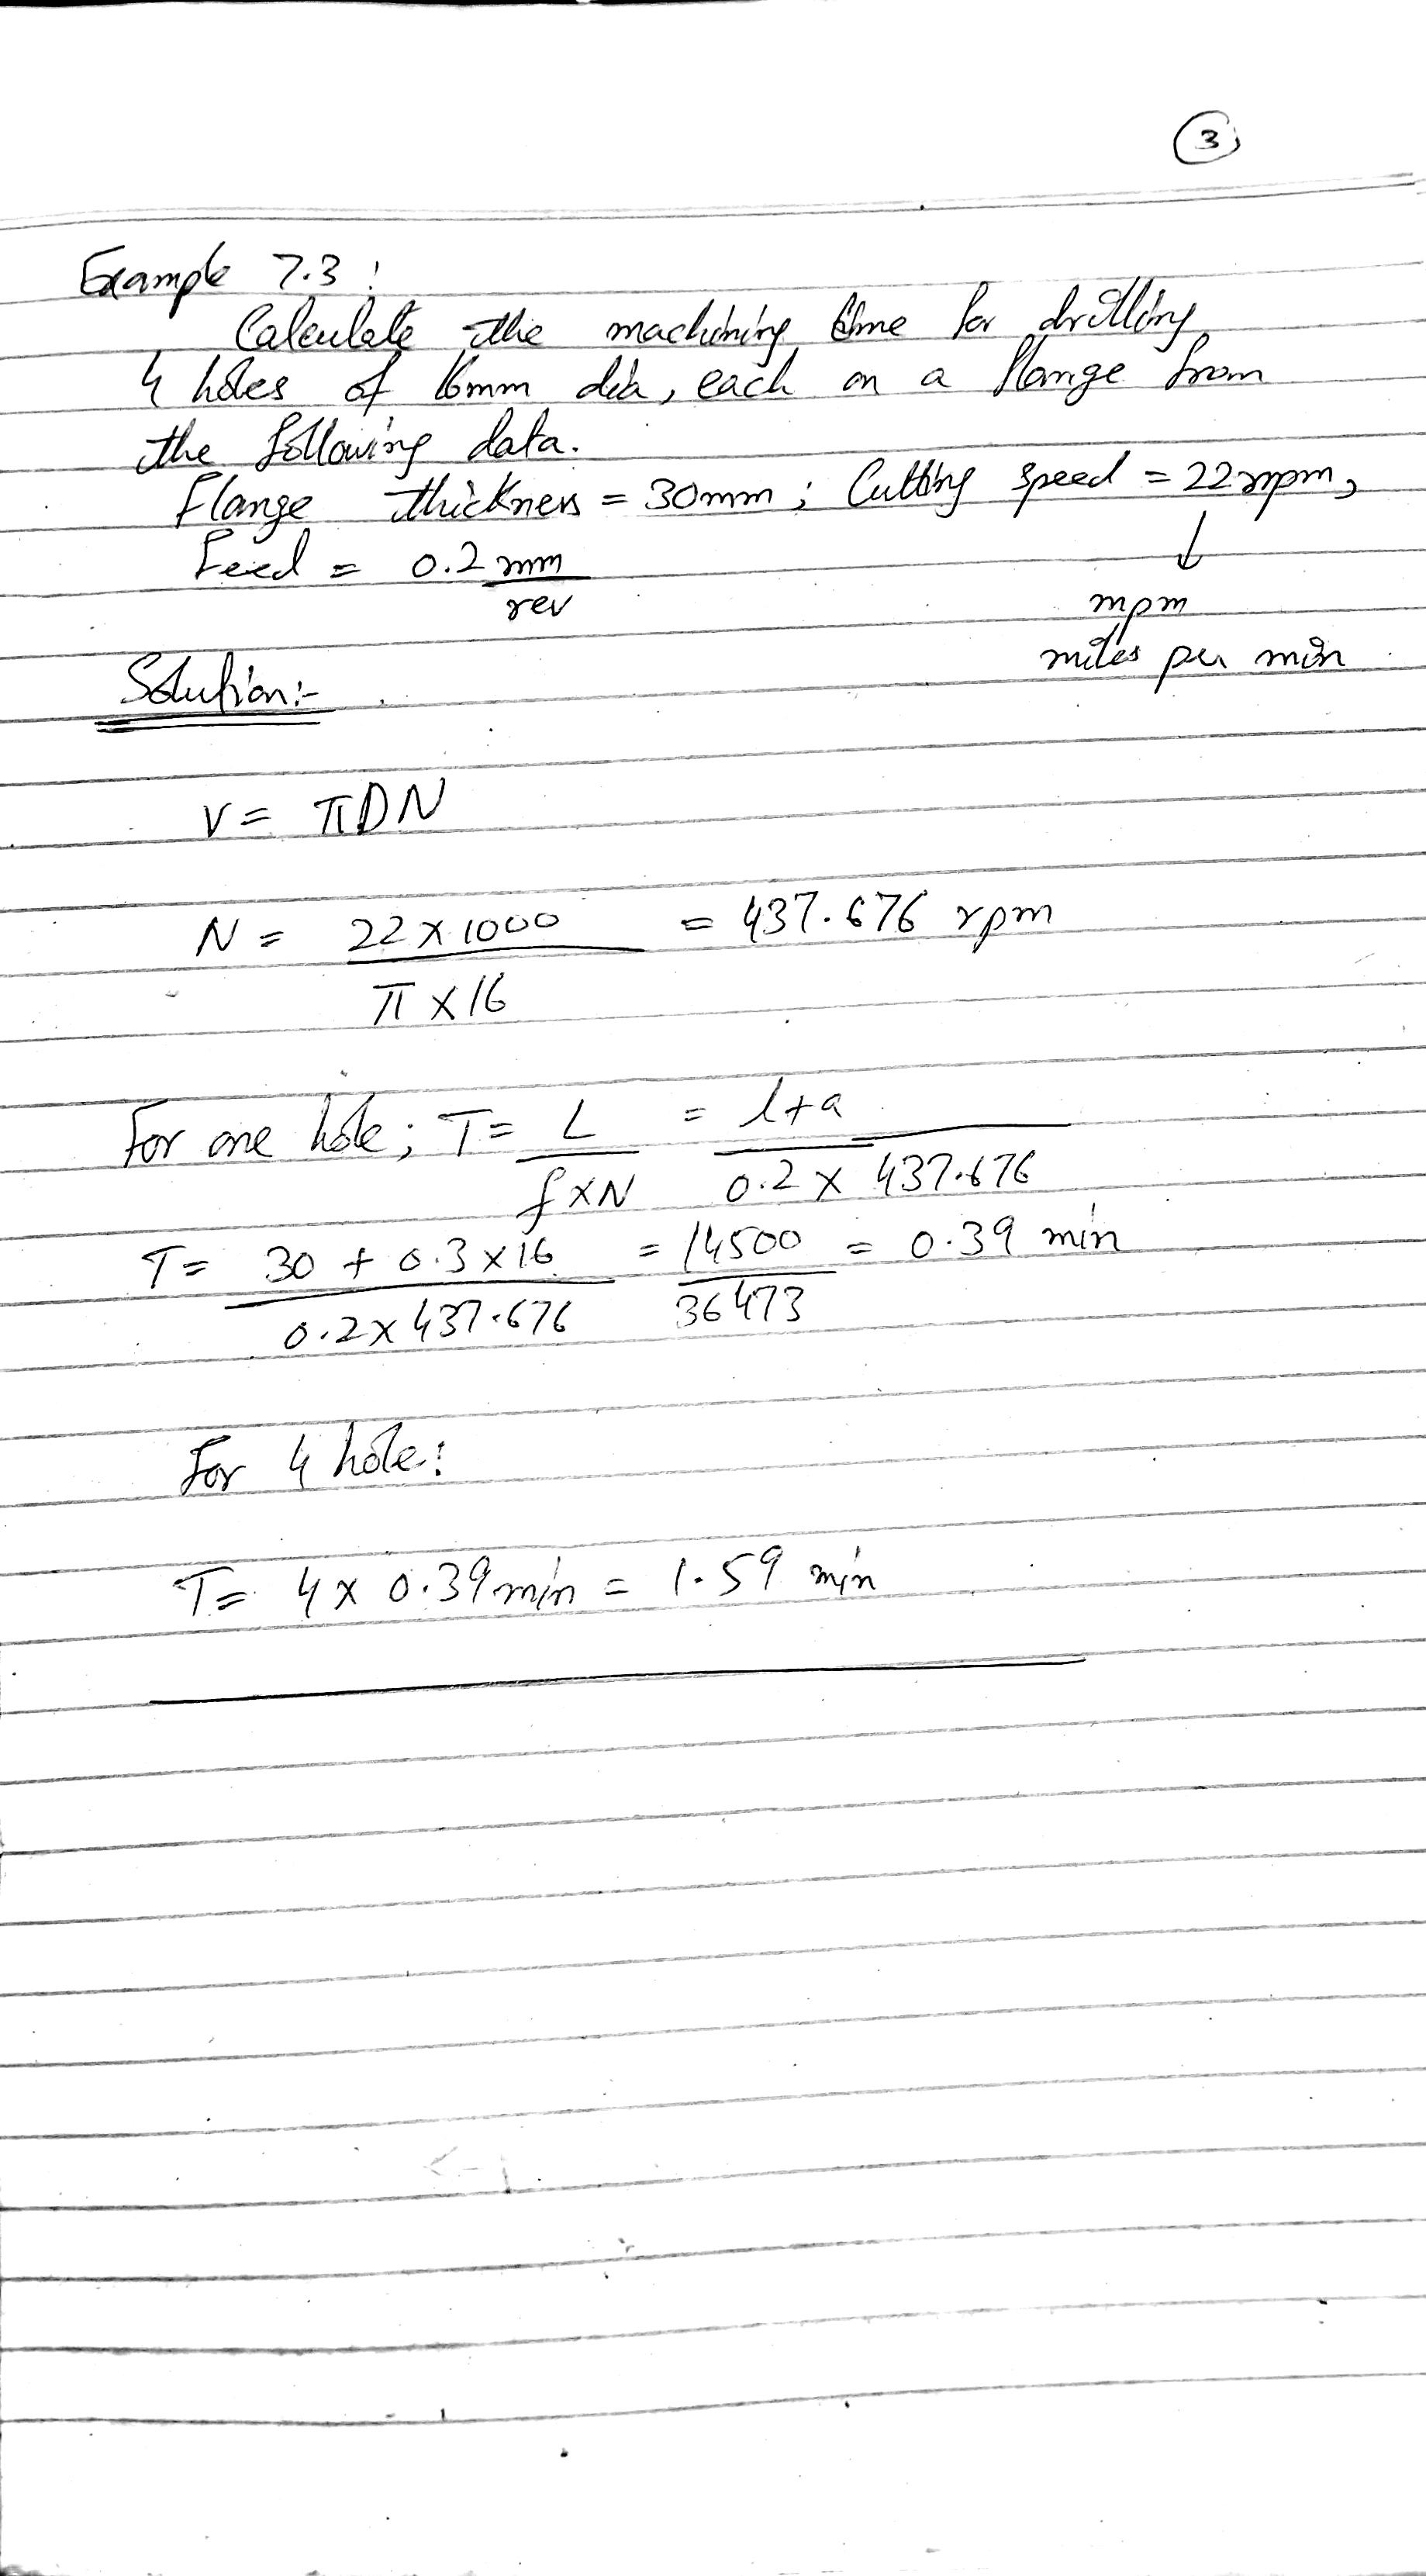 3
Example 7.3 :
Calculate the machining time for drilling
4 holes of 16mm dia, each on a flange from
the following data.
Flange thickness = 30mm ; Cutting speed = 22 mpm,
Feed = 0.2 mm/rev
↓
mpm
miles per min
Solution:-
V = πDN
N = 22 x 1000 / π x 16 = 437.676 rpm
For one hole; T = L / f x N = l+a / 0.2 x 437.676
T = 30 + 0.3 x 16 / 0.2 x 437.676 = 14500 / 36473 = 0.39 min
For 4 hole:
T = 4 x 0.39 min = 1.59 min